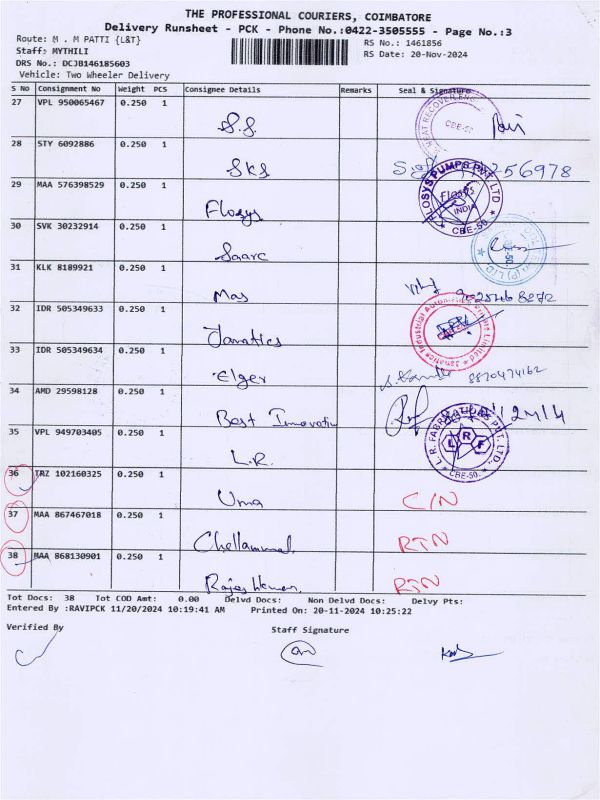 THE PROFESSIONAL COURIERS, COIMBATORE
Delivery Runsheet - PCK - Phone No.:0422-3505555 - Page No.:3
Route: M . M PATTI {L&T}
RS No.: 1461856
Staff: MYTHILI
RS Date: 20-Nov-2024
DRS No.: DCJB146185603
Vehicle: Two Wheeler Delivery
S No Consignment No Weight PCS Consignee Details Remarks Seal & Signature
27 VPL 950065467 0.250 1 S.S. HEAT RECOVER CBE-50
28 STY 6092886 0.250 1 SKS 256978
29 MAA 576398529 0.250 1 Flosys FLOSYS PUMPS PVT. LTD Flosys INDIA CBE-50.
30 SVK 30232914 0.250 1 Saarc
31 KLK 8189921 0.250 1 Mas
32 IDR 505349633 0.250 1 Janatics Janatics Industrial Private Limited
33 IDR 505349634 0.250 1 Elger 8870474162
34 AMD 29598128 0.250 1 Best Innovativ
35 VPL 949703405 0.250 1 L.R. L.R. FABRICATIONS PVT. LTD. L R F CBE-50.
36 TRZ 102160325 0.250 1 Uma C/N
37 MAA 867467018 0.250 1 Chellammal RTN
38 MAA 868130901 0.250 1 Rajeshkumar RTN
Tot Docs: 38 Tot COD Amt: 0.00 Delvd Docs: Non Delvd Docs: Delvy Pts:
Entered By :RAVIPCK 11/20/2024 10:19:41 AM Printed On: 20-11-2024 10:25:22
Verified By Staff Signature